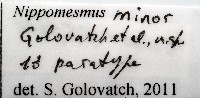 Nippomesmus minor
Golovatch et al., n.sp.
1♂ paratype
det. S. Golovatch, 2011